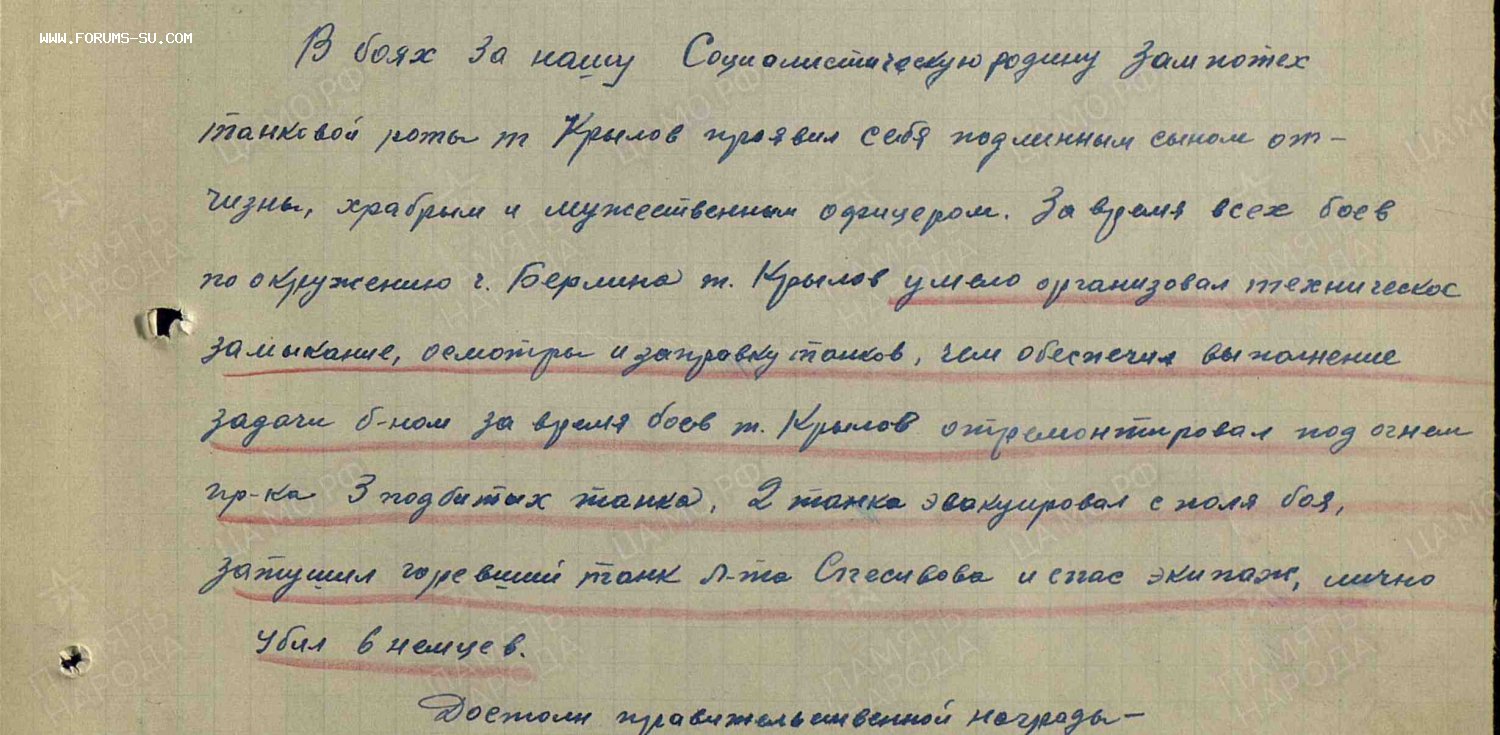 WWW.FORUMS-SU.COM
В боях за нашу Социалистическую родину Зампотех
танковой роты т Крылов проявил себя подлинным сыном от-
чизны, храбрым и мужественным офицером. За время всех боев
по окружению г. Берлина т. Крылов умело организовал техническое
замыкание, осмотры и заправку танков, чем обеспечил выполнение
задачи б-ном за время боев т. Крылов отремонтировал под огнем
пр-ка 3 подбитых танка, 2 танка эвакуировал с поля боя,
затушил горевший танк л-та Спесивова и спас экипаж, лично
убил 6 немцев.
Достоин правительственной награды-